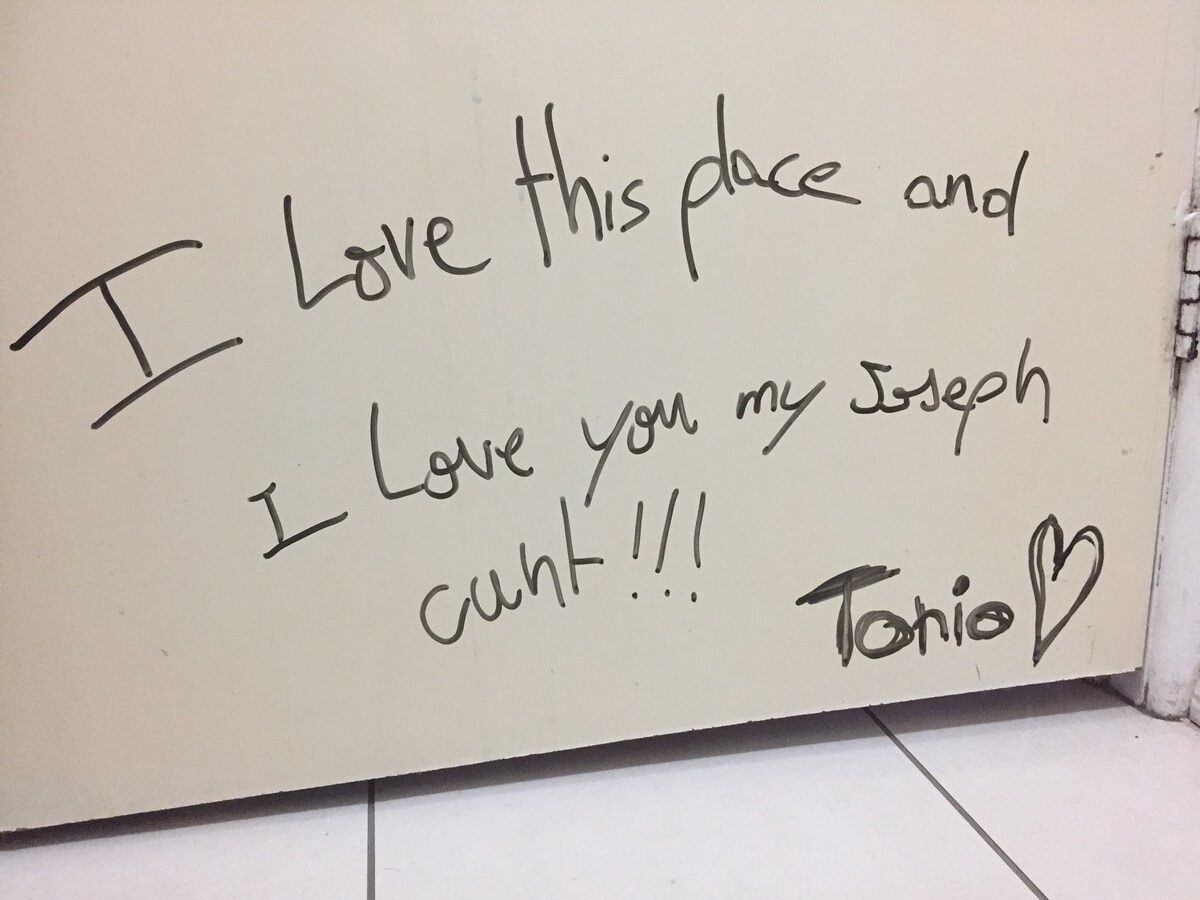 I Love this place and
I Love you my Joseph
cunt!!!
Tonio